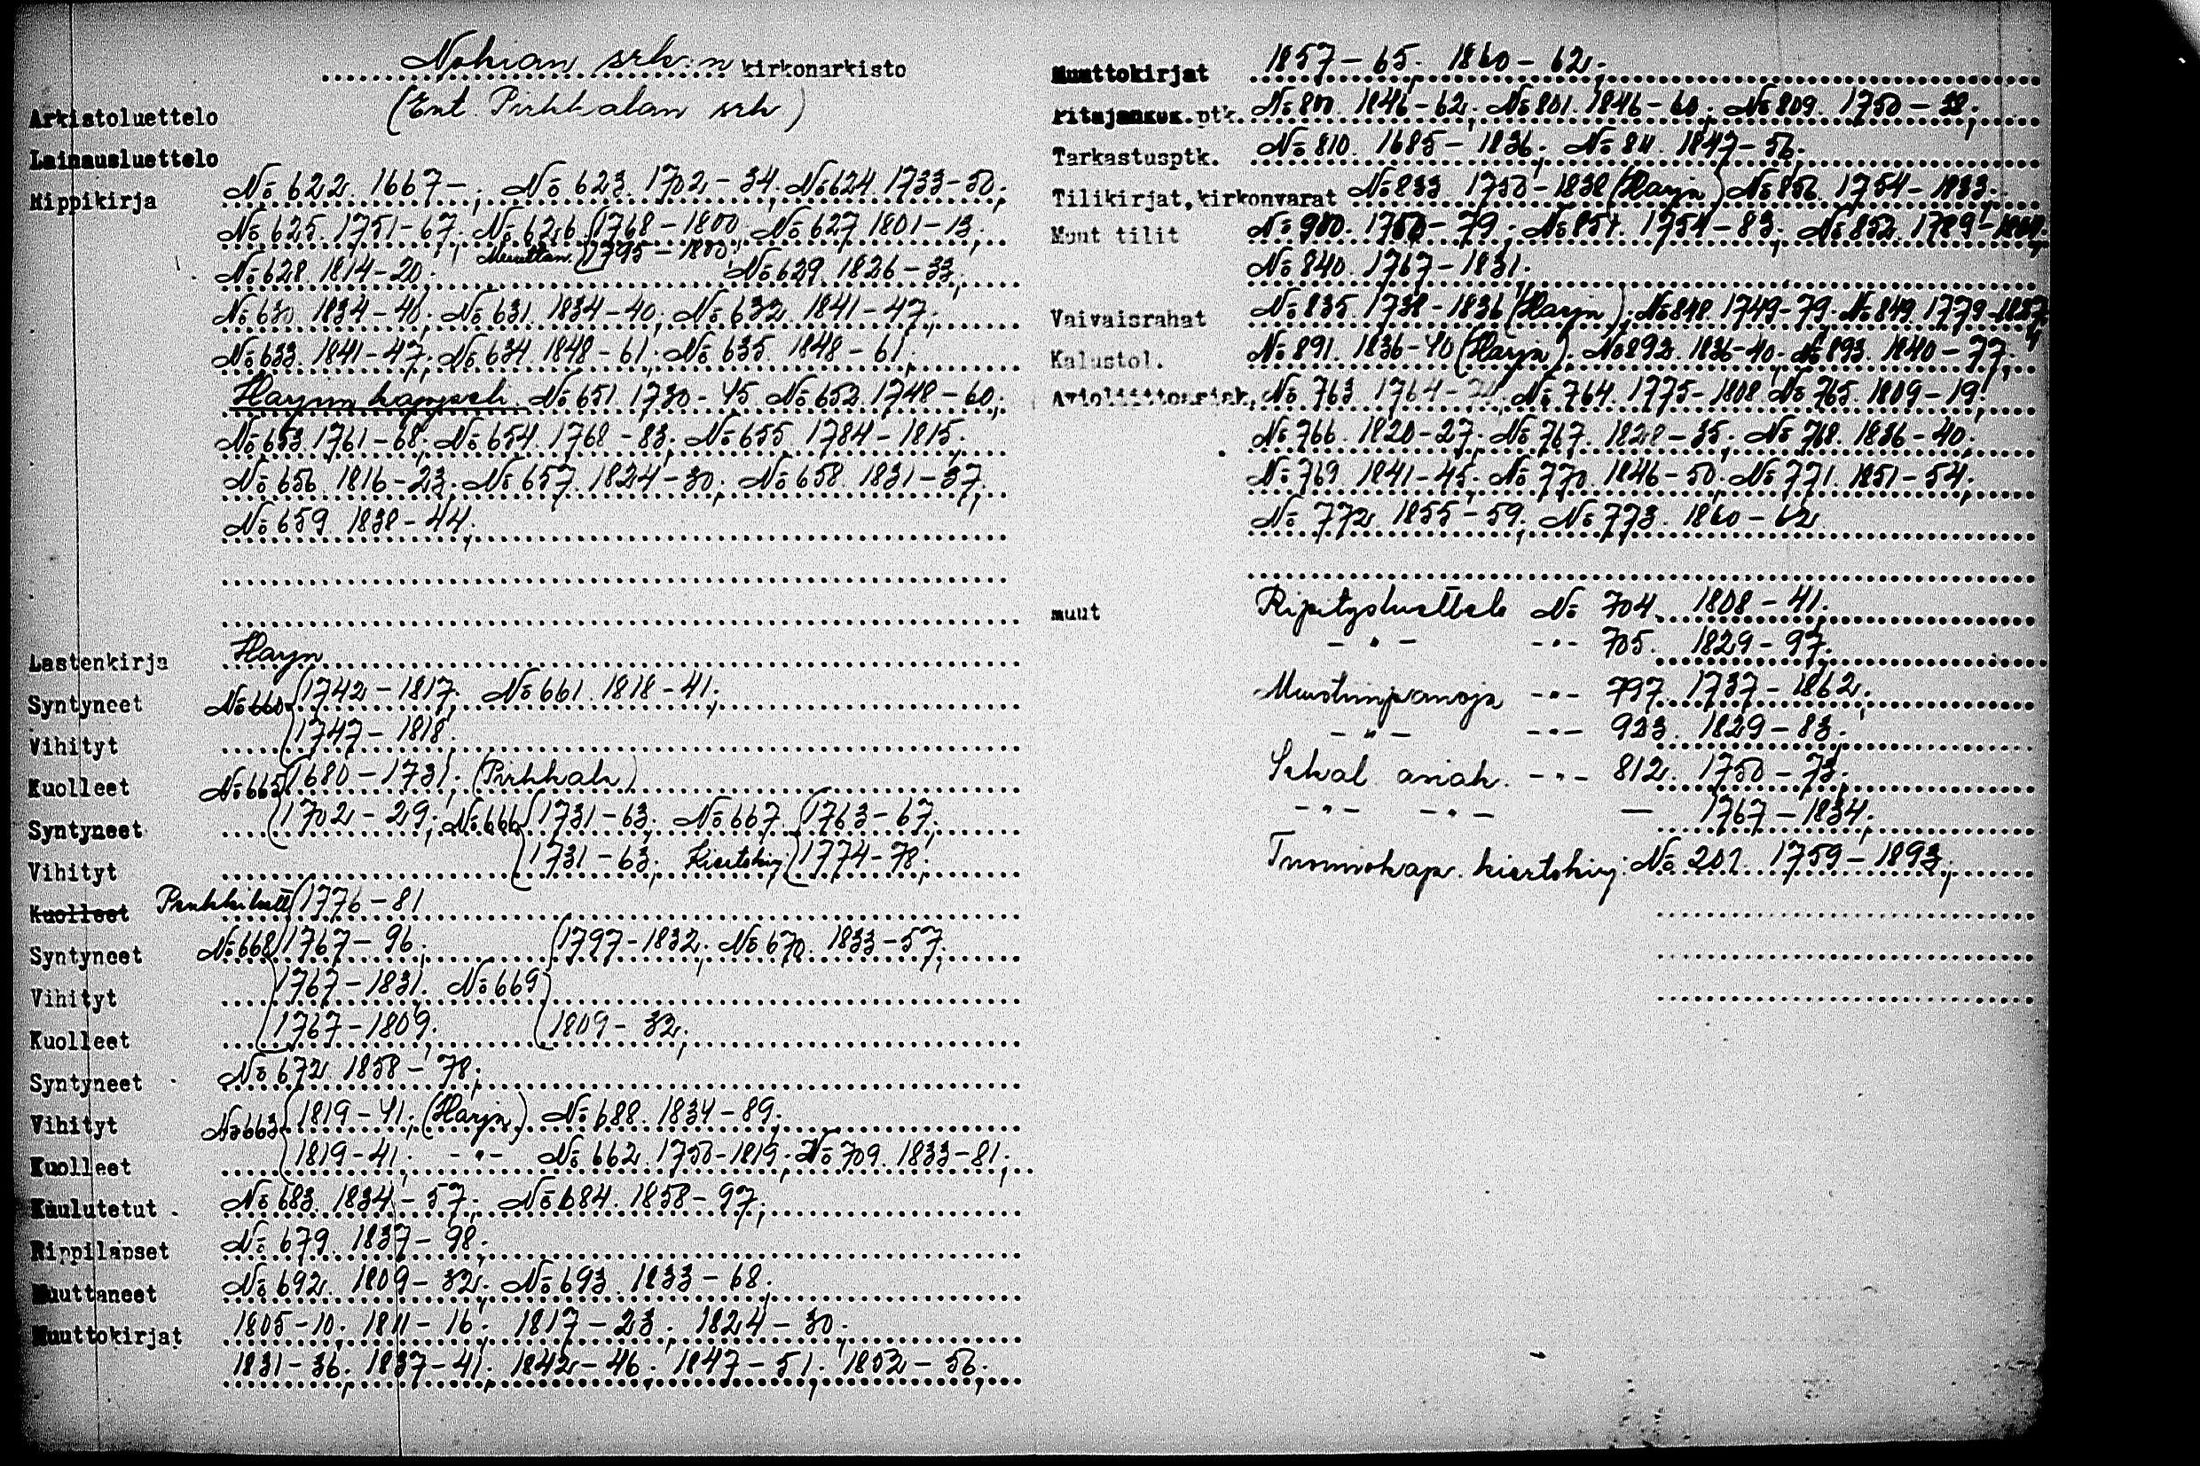 Nokian srk:n kirkonarkisto
(Ent. Pirkkalan srk)
Arkistoluettelo
Lainausluettelo
Rippikirja No 622. 1667-; No 623. 1702-34; No 624. 1733-50;
No 625. 1751-67; No 626. 1768-1800; No 627. 1801-13;
Muuttan. 1795-1800;
No 628. 1814-20; No 629. 1826-33;
No 630 1834-40; No 631. 1834-40; No 632. 1841-47;
No 633. 1841-47; No 634. 1848-61; No 635. 1848-61;
Harjun kappeli. No 651. 1730-45 No 652. 1748-60;
No 653 1761-68; No 654. 1768-83; No 655. 1784-1815;
No 656. 1816-23; No 657. 1824-30; No 658. 1831-37;
No 659. 1838-44;
Lastenkirja Harju
Syntyneet No 660 1742-1817; No 661. 1818-41;
Vihityt 1747-1818.
Kuolleet No 665 1680-1731. (Pirkkala)
Syntyneet 1702-29; No 666 1731-63; No 667 1763-67;
Vihityt 1731-63; Kiertokirj. 1774-78;
Kuolleet Penkkiluett. 1776-81
Syntyneet No 668 1767-96; 1797-1832; No 670. 1833-57;
Vihityt 1767-1831. No 669
Kuolleet 1767-1809; 1809-32;
Syntyneet No 672 1858-78;
Vihityt No 663 1819-41; (Harju) No 688. 1834-89;
Kuolleet 1819-41; -"- No 662. 1750-1819; No 709. 1833-81;
Kuulutetut No 683. 1834-57; No 684. 1858-97;
Rippilapset No 679. 1837-98;
Muuttaneet No 692. 1809-32; No 693. 1833-68;
Muuttokirjat 1805-10; 1811-16; 1817-23; 1824-30;
1831-36; 1837-41; 1842-46; 1847-51; 1852-56;
Muuttokirjat 1857-65; 1860-62;
Pitäjänkok.ptk. 1846-62; No 801. 1846-60; No 809. 1750-38;
Tarkastusptk. No 810. 1685-1836; No 811. 1847-56;
Tilikirjat,kirkonvarat No 833. 1750-1838 (Harju) No 856. 1754-1833;
Muut tilit No 900. 1750-79; 1754-83; No 852. 1789-
No 840. 1767-1831.
Vaivaisrahat No 835. 1738-1836 (Harju); No 848. 1749-79; No 849. 1779-1857
Kalustol. No 891. 1836-40 (Harju). No 892. 1836-40; No 893. 1840-77;
Avioliittoasiak. No 763. 1764- No 764. 1775-1808 No 765. 1809-19;
No 766. 1820-27; No 767. 1828-35; No 768. 1836-40;
No 769. 1841-45; No 770. 1846-50; No 771. 1851-54;
No 772. 1855-59; No 773. 1860-62
muut Ripitysluettelo No 704. 1808-41.
-"- -"- 705. 1829-97.
Muistiinpanoja -"- 797. 1737-1862;
-"- -"- 923. 1829-83;
Sekal. asiak. -"- 812. 1750-73;
-"- -"- — 1767-1834;
Tuomiokap. kiertokirj. No 201. 1759-1893;